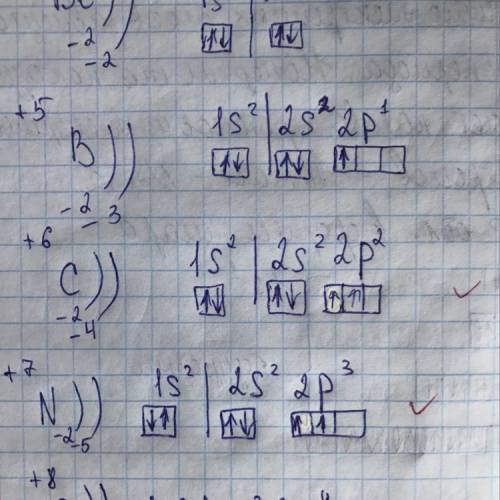 -2 -2 ↑↓ | ↑↓
+5
B )) 1s² | 2s² 2p¹
↑↓ | ↑↓ ↑
-2 -3
+6
C )) 1s² | 2s² 2p²
↑↓ | ↑↓ ↑ ↑
-2 -4
+7
N )) 1s² | 2s² 2p³
-2 -5 ↓↑ | ↑↓ ↑ ↑
+8